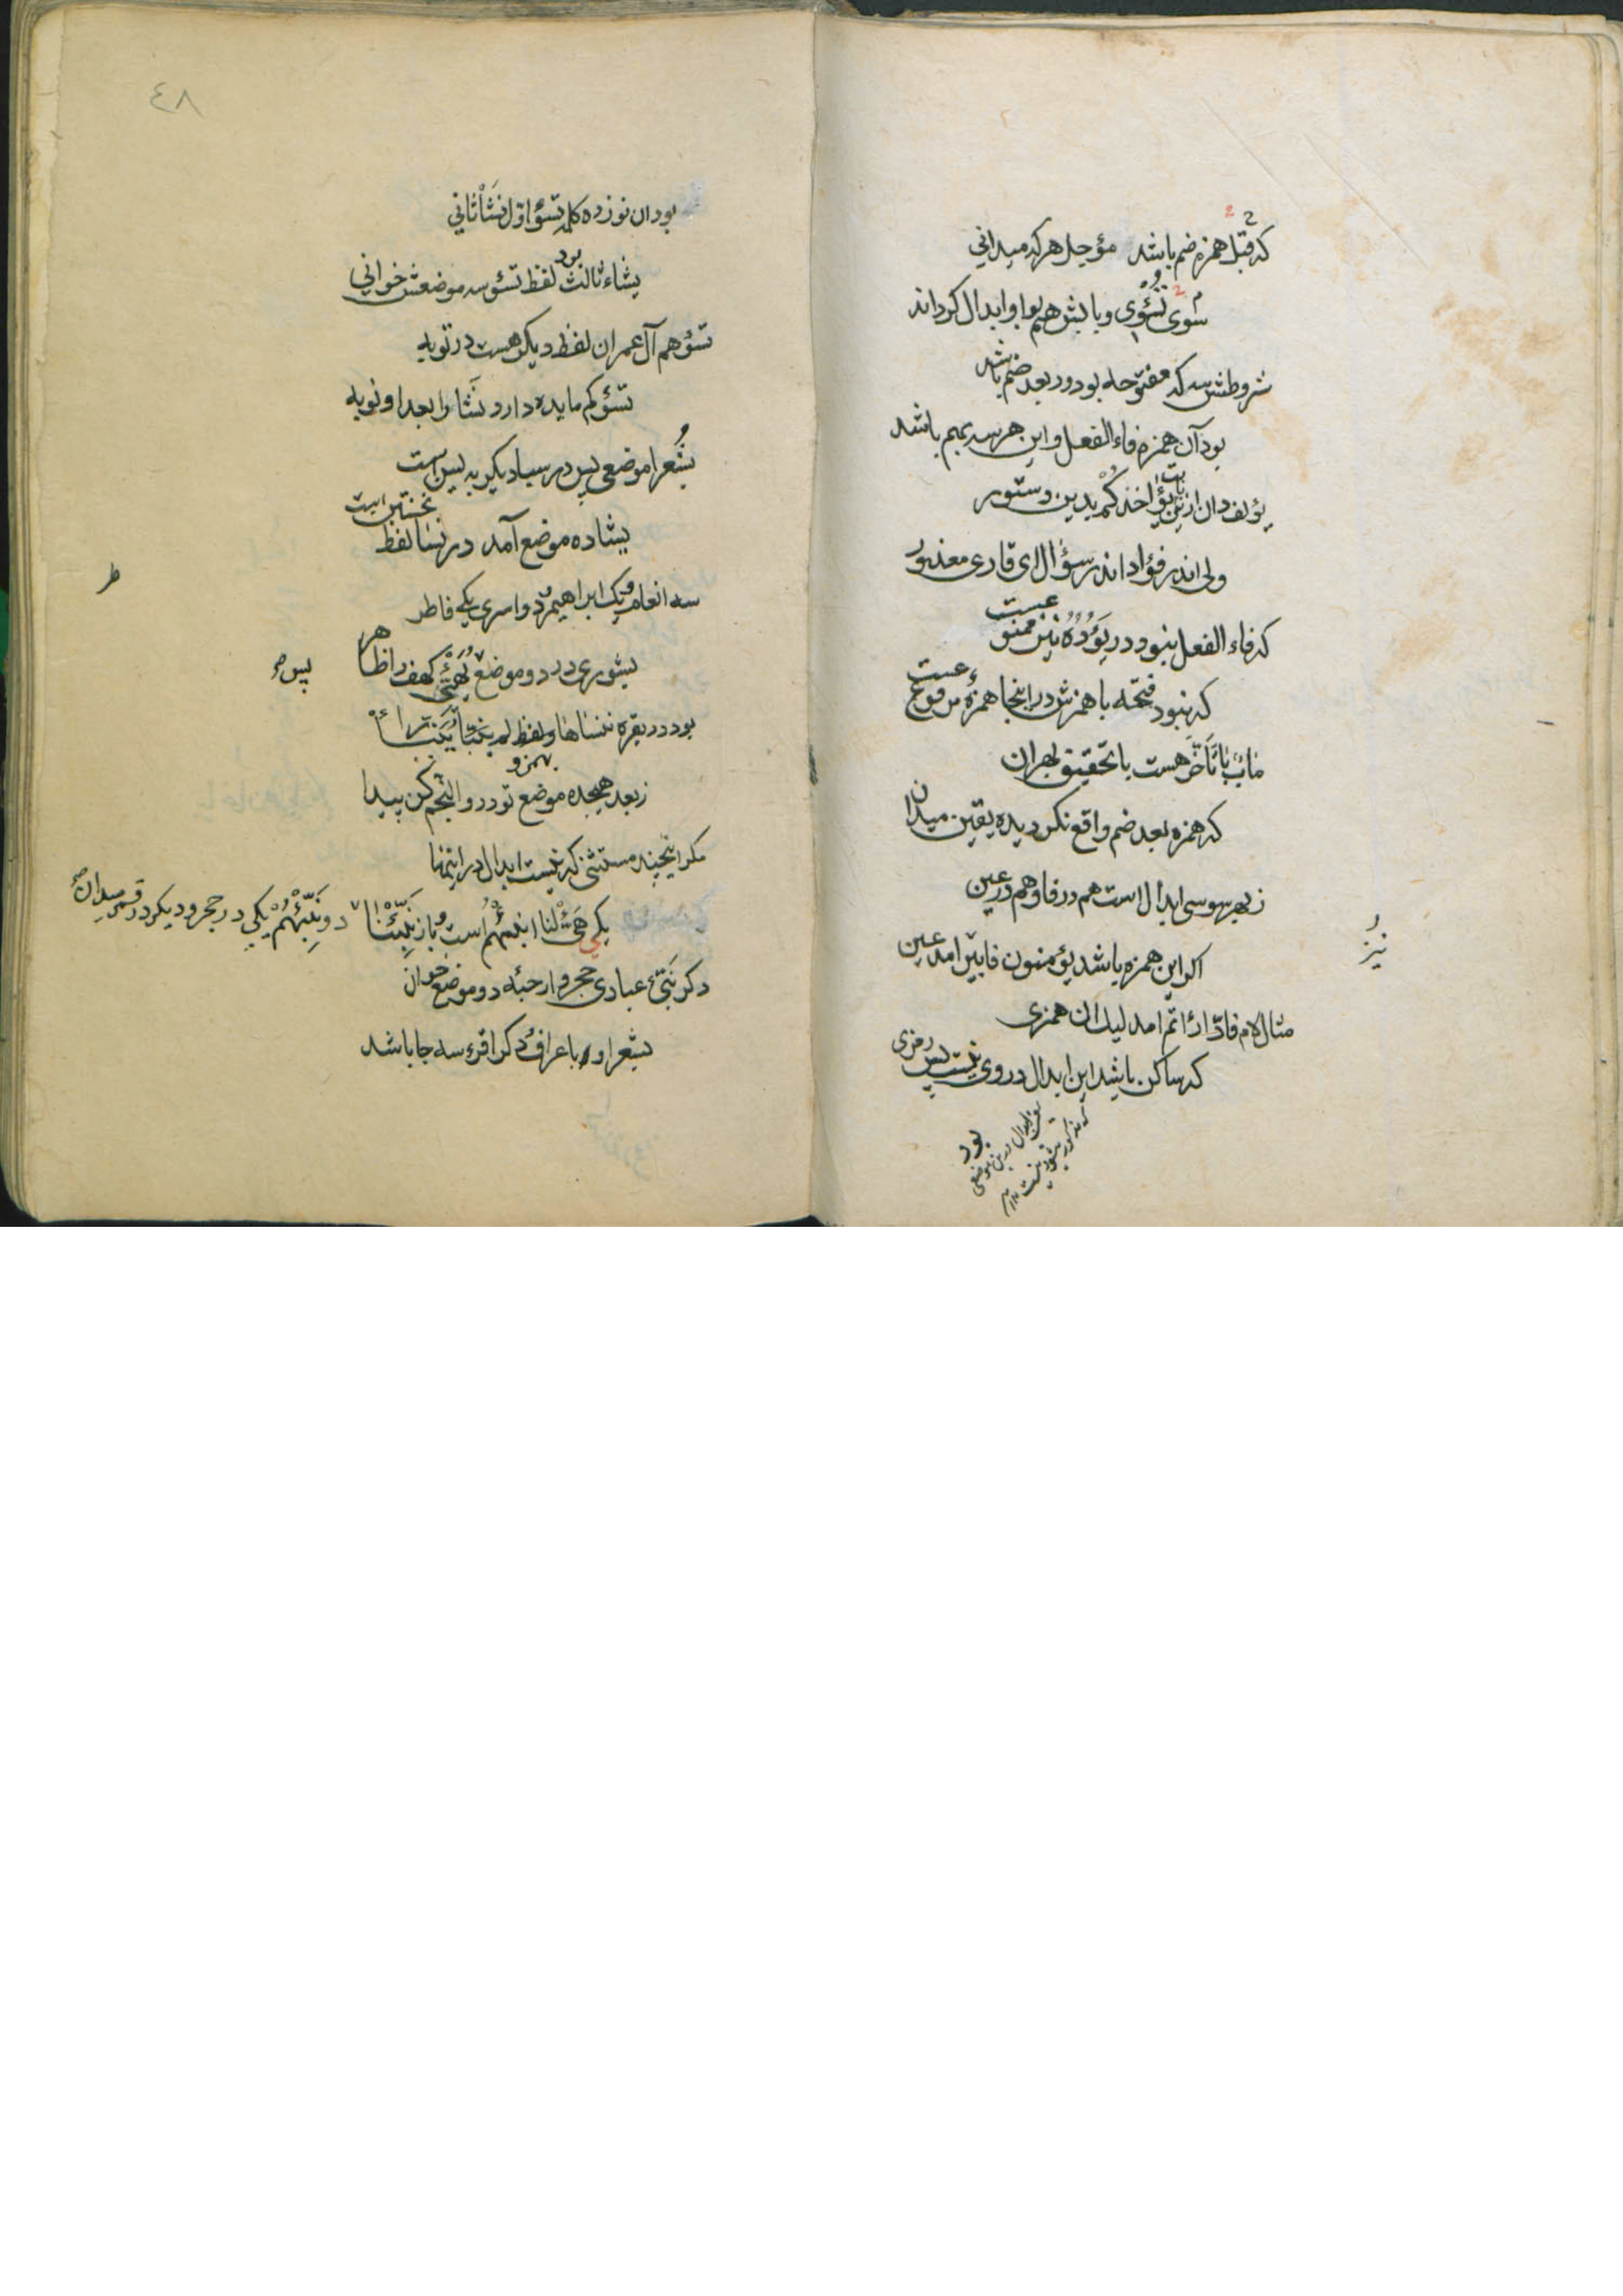 که قبل همزه ضم باشد مؤجل هر که میدانی
سوی تئوی و بابش هم بواو ابدال کرداند
شروطش سه که مفتوحه بود ور بعد ضم باشد
بود آن همزه فاء الفعل و این هر سه بهم باشد
یؤلف دان ازین یؤاخذکم بدین دستور
ولی اندر فؤاد اندر سؤال ای قاری معذور
که فاء الفعل نبود در یؤده نیز ممنوعست
که نبود فتحه با همزش در اینجا همزه مرفوعست
مآب با تأخر هست با تحقیق بهر آن
که همزه بعد ضم واقع نکردیده یقین میدان
ز بهر سوسی ابدال است هم در فا و هم در عین
نیز
اکر این همزه باشد یؤمنون فا بیر امد عین
مثال لام فادارأتم امد لیک ان همزی
که ساکن باشد این ابدال در وی نیست پس رمزی
بود
٤٨
بود ان نوزده کلمه تسؤ اول نشأ ثانی
یشاء ثالث بود لفظ تسؤ سه موضعش خوانی
تسؤهم آل عمران لفظ دیکر هست در توبه
تسؤکم مایده دارد نشا را بعد او نوبه
بشعرا موضعی پس در سبا دیکر به یس است
یشا ده موضع آمد در نسا لفظ نخستین است
سه انعام و یک ابراهیم و دو اسری یکی فاطر
بشوری در دو موضع یهیئ کهف را ظاهر
بود در بقره ننساها و لفظ لم ینبأ
ز بعد هیجده موضع تو در والنجم کن پیدا
مکر اینچند مستثنی که نیست ابدال در اینها
یکی هیئ لنا انبئهم است و باز نبئنا
دو نبئهم یکی در حجر و دیکر در قمر میدان
دکر نبئ عبادی حجر و ارجئه دو موضع خوان
بشعرا و باعراف و دکر اقرء سه جا باشد